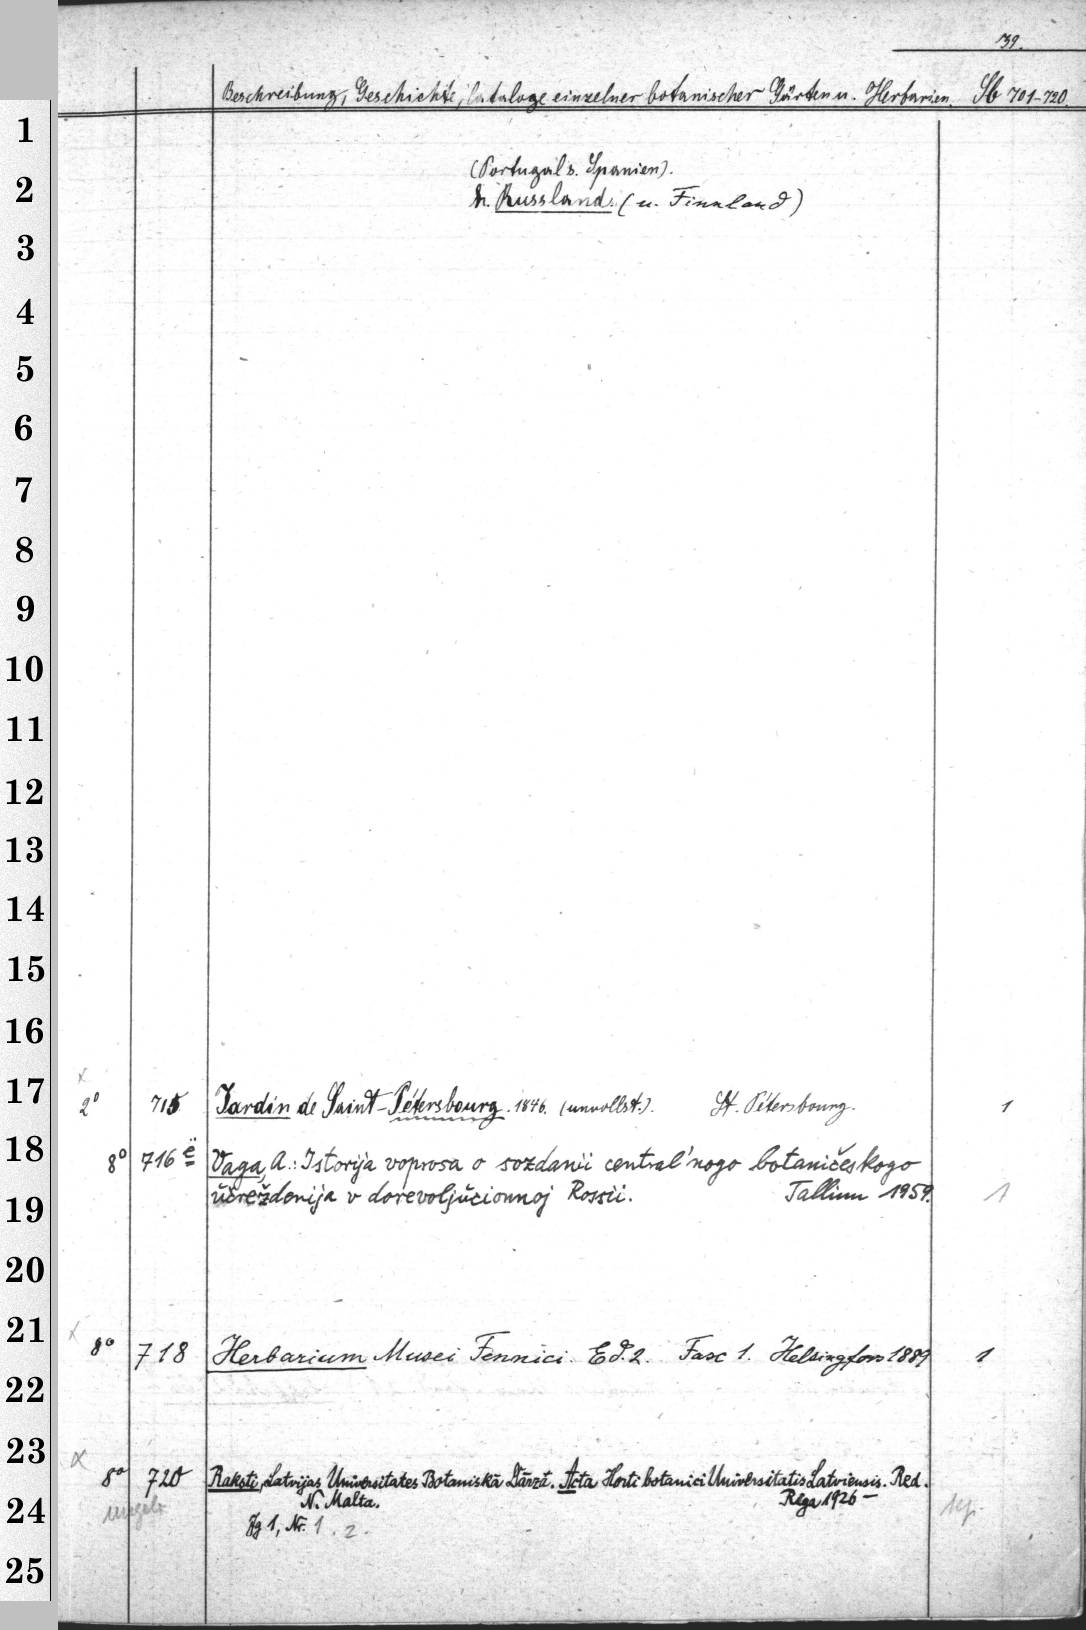 39.
Beschreibung, Geschichte, Cataloge einzelner botanischer Gärten u. Herbarien. Sb 701-720.
1
(Portugal s. Spanien).
2
h. Russland. (u. Finnland)
3
4
5
6
7
8
9
10
11
12
13
14
15
16
x
17
2° 715 Jardin de Saint-Pétersbourg. 1846. (unvollst.). St. Pétersbourg. 1
18
8° 716 ë Vaga, A.: Istorija voprosa o sozdanii central'nogo botaničeskogo
19
učreždenija v dorevoljucionnoj Rossii. Tallinn 1959. 1
20
21
x 8° 718 Herbarium Musei Fennici. Ed. 2. Fasc 1. Helsingfors 1889 1
22
23
x 8° 720 Raksti, Latvijas Universitates Botaniskā Dārzā. Acta Horti botanici Universitatis Latviensis. Red.
24
N. Malta. Riga 1926-
Jg 1, Nr. 1. 2.
25